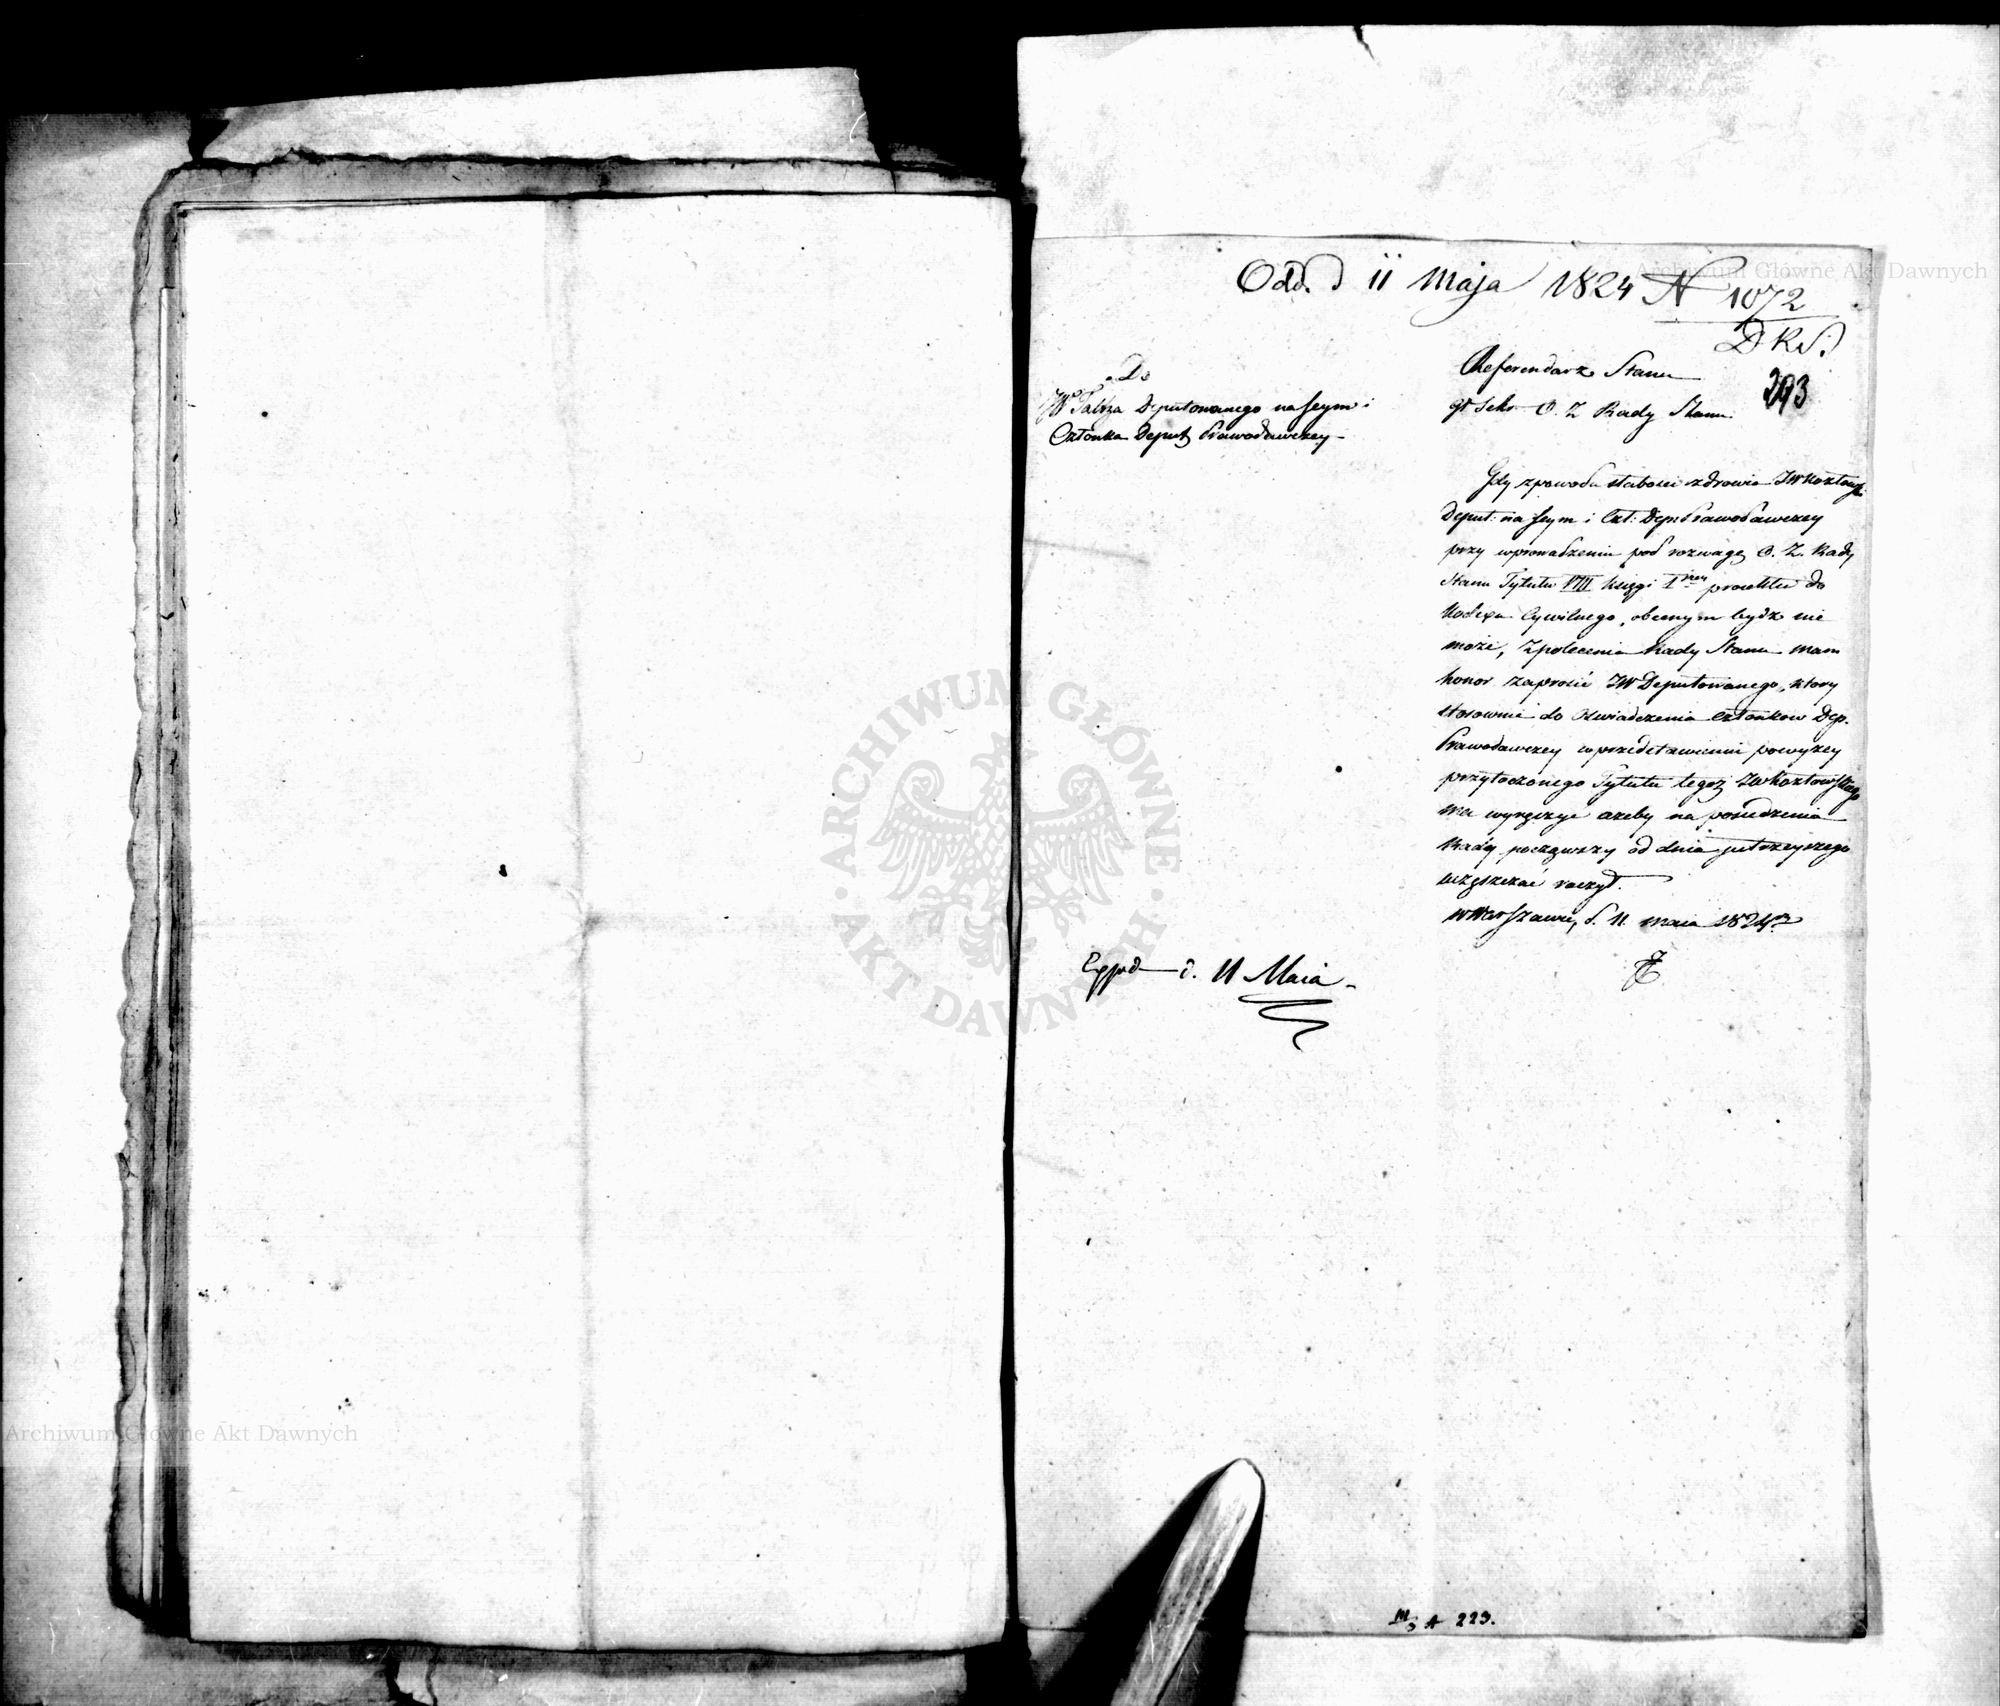 Odd. d 11 Maja 1824 N 1072
D.R.S.
293
Do
JW Deputowanego na Seym i
Członka Deput Prawodawczey
Referendarz Stanu
O. Z Rady Stanu
Gdy zpowodu słabości zdrowia JW Kozłowski
Deput: na Seym i Czł: Dep: Prawodawczey
przy wprowadzeniu pod rozwagę O. Z. Rady
Stanu Tytułu VIII księgi 1 proiektu do
Kodexu Cywilnego, obecnym bydz nie
może, Zpolecenia Rady Stanu mam
honor zaprosić JW Deputowanego, ktory
stosownie do Oswiadczenia Członkow Dep.
Prawodawczey w przedstawieniu powyzey
przytoczonego Tytułu tegoz JW Kozłowskiego
ma wyręczyć azeby na posiedzenia
Rady począwszy od dnia jutrzeyszego
uczęszczać raczył.
w Warszawie, d. 11. Maia 1824 r
Expd d. 11 Maia
III/3 A 223.
Archiwum Główne Akt Dawnych
ARCHIWUM GŁÓWNE AKT DAWNYCH
Archiwum Główne Akt Dawnych